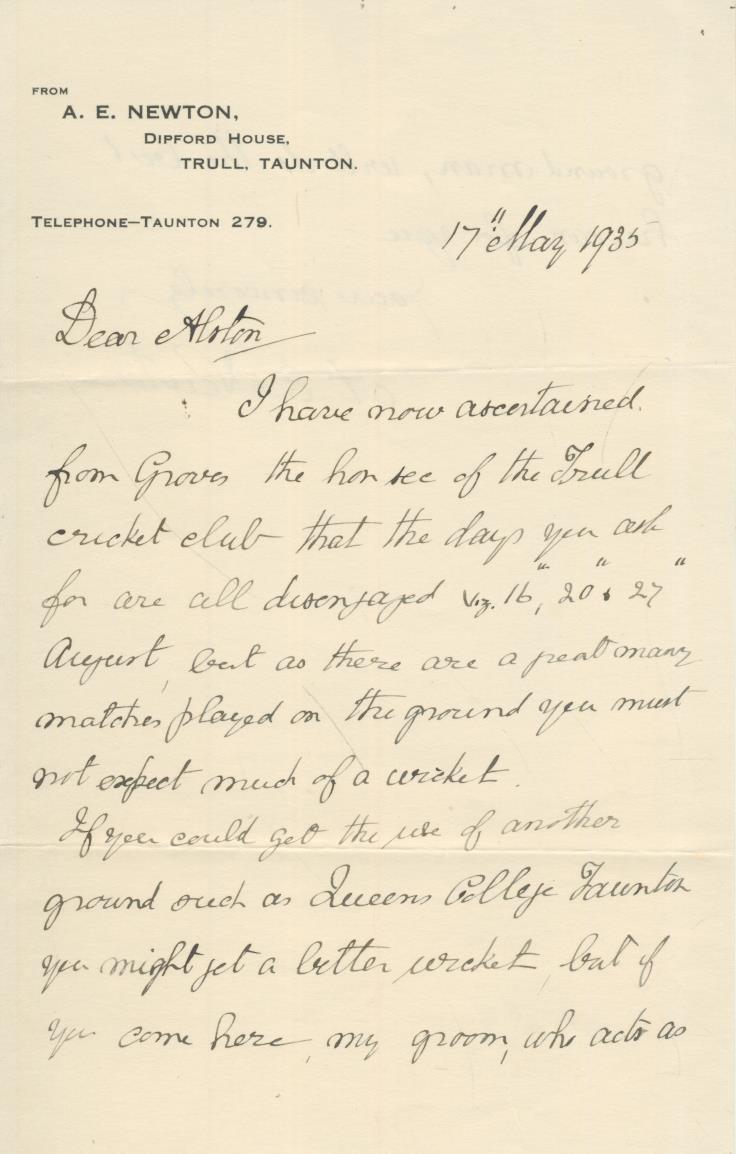 FROM
A. E. NEWTON,
DIPFORD HOUSE,
TRULL, TAUNTON.
TELEPHONE—TAUNTON 279.
17" May 1935
Dear Alston
I have now ascertained
from Groves the hon sec of the Trull
cricket club that the days you ask
for are all disengaged viz. 16", 20" & 27"
August, but as there are a great many
matches played on the ground you must
not expect much of a wicket.
If you could get the use of another
ground such as Queens College Taunton
you might get a better wicket, but if
you come here, my groom, who acts as